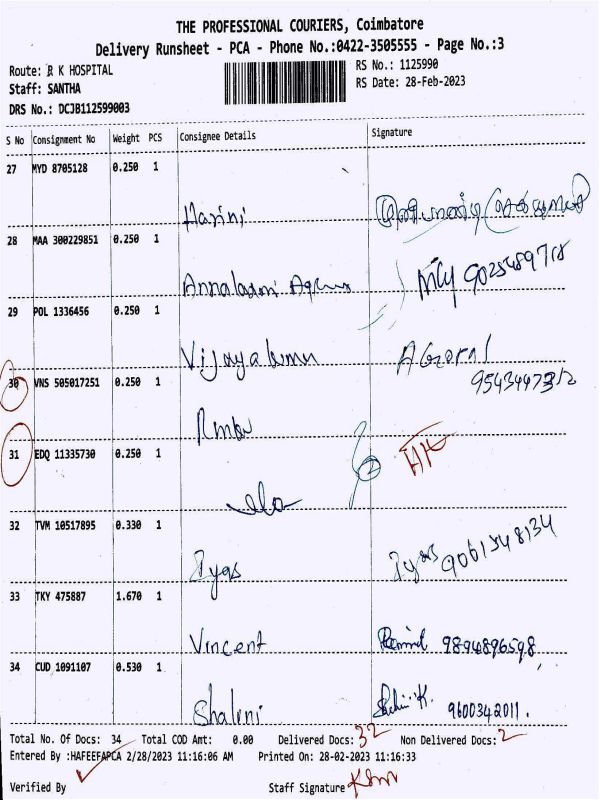 THE PROFESSIONAL COURIERS, Coimbatore
Delivery Runsheet - PCA - Phone No.:0422-3505555 - Page No.:3
Route: R K HOSPITAL
RS No.: 1125990
Staff: SANTHA
RS Date: 28-Feb-2023
DRS No.: DCJB112599003
S No Consignment No Weight PCS Consignee Details Signature
27 MYD 8705128 0.250 1
Harini
28 MAA 300229851 0.250 1
Annalaxmi
29 POL 1336456 0.250 1
Vijayakumar
30 VNS 505017251 0.250 1
31 EDQ 11335730 0.250 1
32 TVM 10517895 0.330 1
33 TKY 475887 1.670 1
Vincent 9894896598
34 CUD 1091107 0.530 1
Shalini Shalini K. 9600342011.
Total No. Of Docs: 34 Total COD Amt: 0.00 Delivered Docs: 32 Non Delivered Docs: 2
Entered By :HAFEEFAPCA 2/28/2023 11:16:06 AM Printed On: 28-02-2023 11:16:33
Verified By Staff Signature